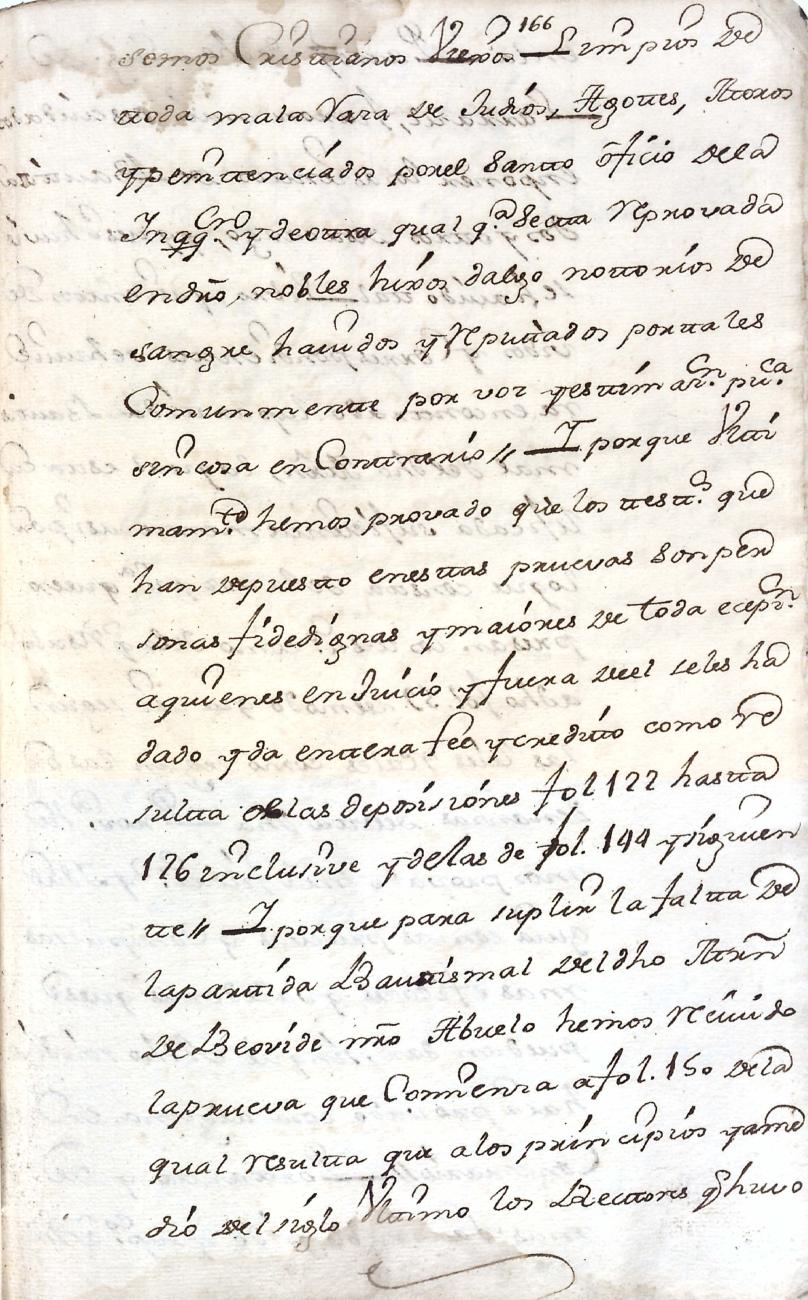 166
semos Cristianos Viexos Limpios de
toda mala Vara de Judios, Agotes, Moros
y penitenciados por el Santo oficio de la
Inqq.cro y de otra qual q.a Secta Reprovada
en dro, nobles hixos dalgo nottorios de
sangre havidos y Reputados por tales
Comunmente por voz y estimaz.n pu.ca
sin cosa en Contrario // Y porque Ulti
mam.te hemos provado que los test.s que
han depuesto en estas pruevas son per
sonas fidedignas y maiores de toda ecepz.n
a quienes en Juicio y fuera de el se les ha
dado y da entera fee y credito como re
sulta de las deposiciones fol 122 hasta
126 inclusive y de las de fol. 144 y siguien
te // Y porque para suplir la falta de
la partida Bautismal del dho Mrn
de Beovide nro Abuelo hemos recivido
la prueva que Comienza a fol. 150 de la
qual resulta que a los principios y a me
dio del siglo Ultimo los Rectores q huvo